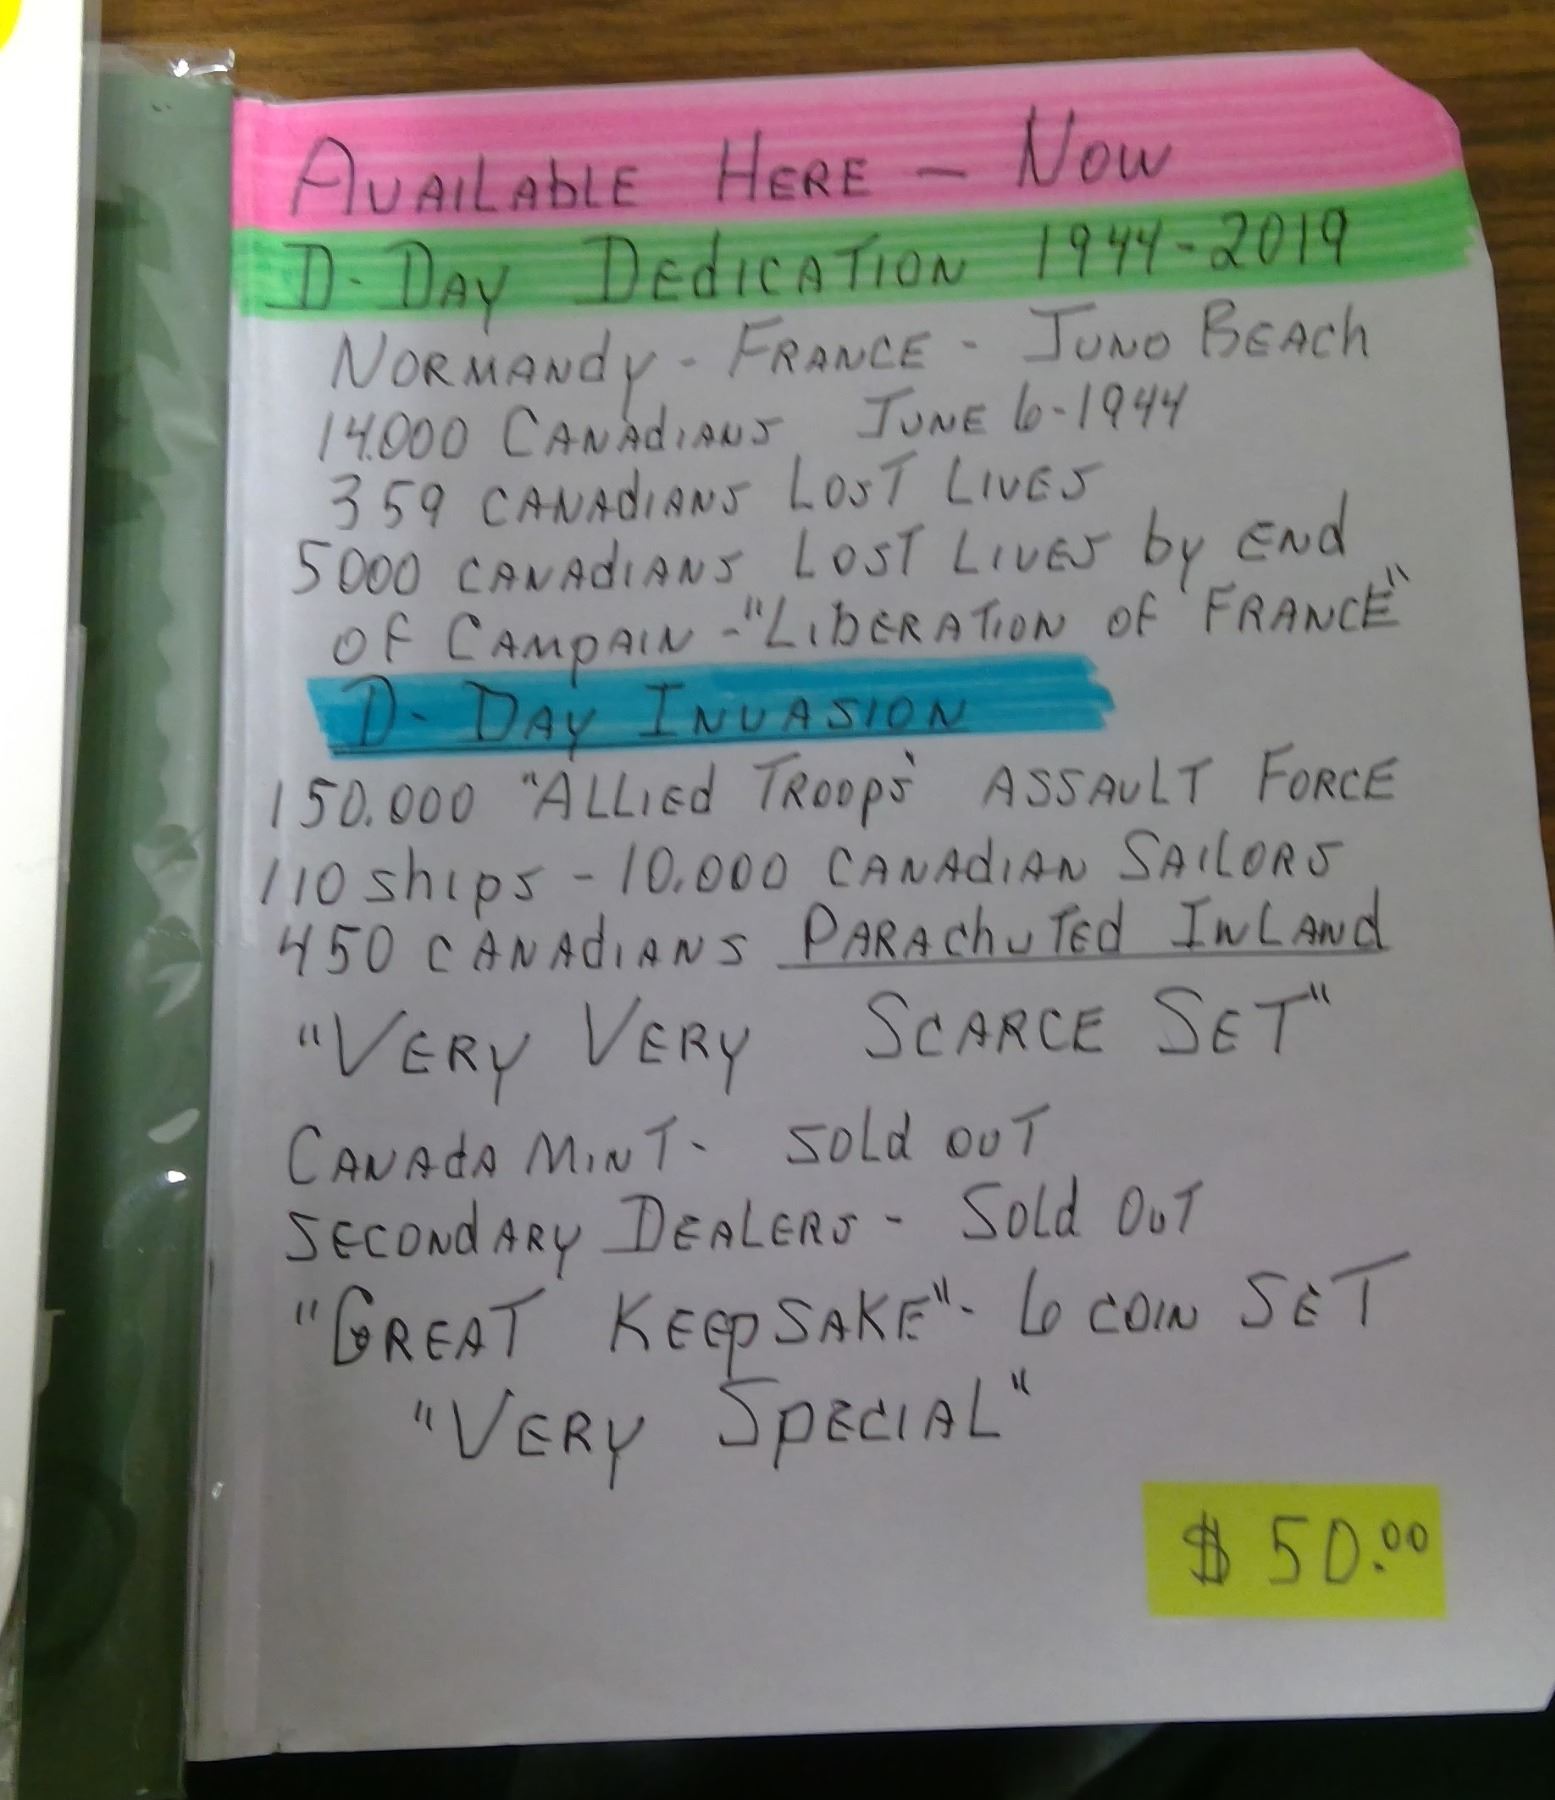 AVAILAbLE HERE - NOW
D-DAY DEdICATION 1944-2019
NORMANdy - FRANCE - JUNO BEACh
14.000 CANAdIANS JUNE 6-1944
359 CANAdIANS LOST LIVES
5000 CANAdIANS LOST LIVES by ENd
OF CAMpAIN - "LIbERATION OF FRANCE"
D-DAY INVASION
150.000 "ALLIEd TROOpS" ASSAULT FORCE
110 ShIpS - 10.000 CANAdIAN SAILORS
450 CANAdIANS PARAChUTEd INLANd
"VERY VERY SCARCE SET"
CANAdA MINT - SOLd OUT
SECONdARY DEALERS - SOLd OUT
"GREAT KEEpSAKE" - 6 COIN SET
"VERY SpECIAL"
$50.00